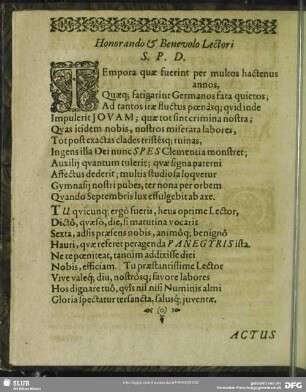 Honorando & Benevolo Lectori
S. P. D.
TEmpora quæ fuerint per multos hactenus
annos,
Quæq; fatigarint Germanos fata quietos;
Ad tantos iræ fluctus pœnasq; qvid inde
Impulerit JOVAM; quæ tot sint crimina nostra;
Qvas itidem nobis, nostros miserata labores,
Tot post exactas clades tristesq; ruinas,
Ingens illa Dei nunc SPES Clementia monstret;
Auxilij qvantum tulerit; quæ signa paterni
Affectus dederit; multis studiosa loqvetur
Gymnasij nostri pubes, ter nona per orbem
Qvando Septembris lux effulgebit ab axe.
TU qvicunq; ergò fueris, heus optime Lector,
Dictô, qvæso, die, si matutina vocarit
Sexta, adsis præsens nobis, animôq; benignô
Hauri, quæ referet peragenda PANEGYRIS ista.
Ne te pœniteat, tantum addixisse diei
Nobis, efficiam. Tu præstantissime Lector
Vive valeq; diu, nostrosq; favore labores
Hos dignare tuô, qvîs nil nisi Numinis almi
Gloria spectatur ter sancta, salusq; juventæ,
(o)
ACTUS
SLUB
Wir führen Wissen.